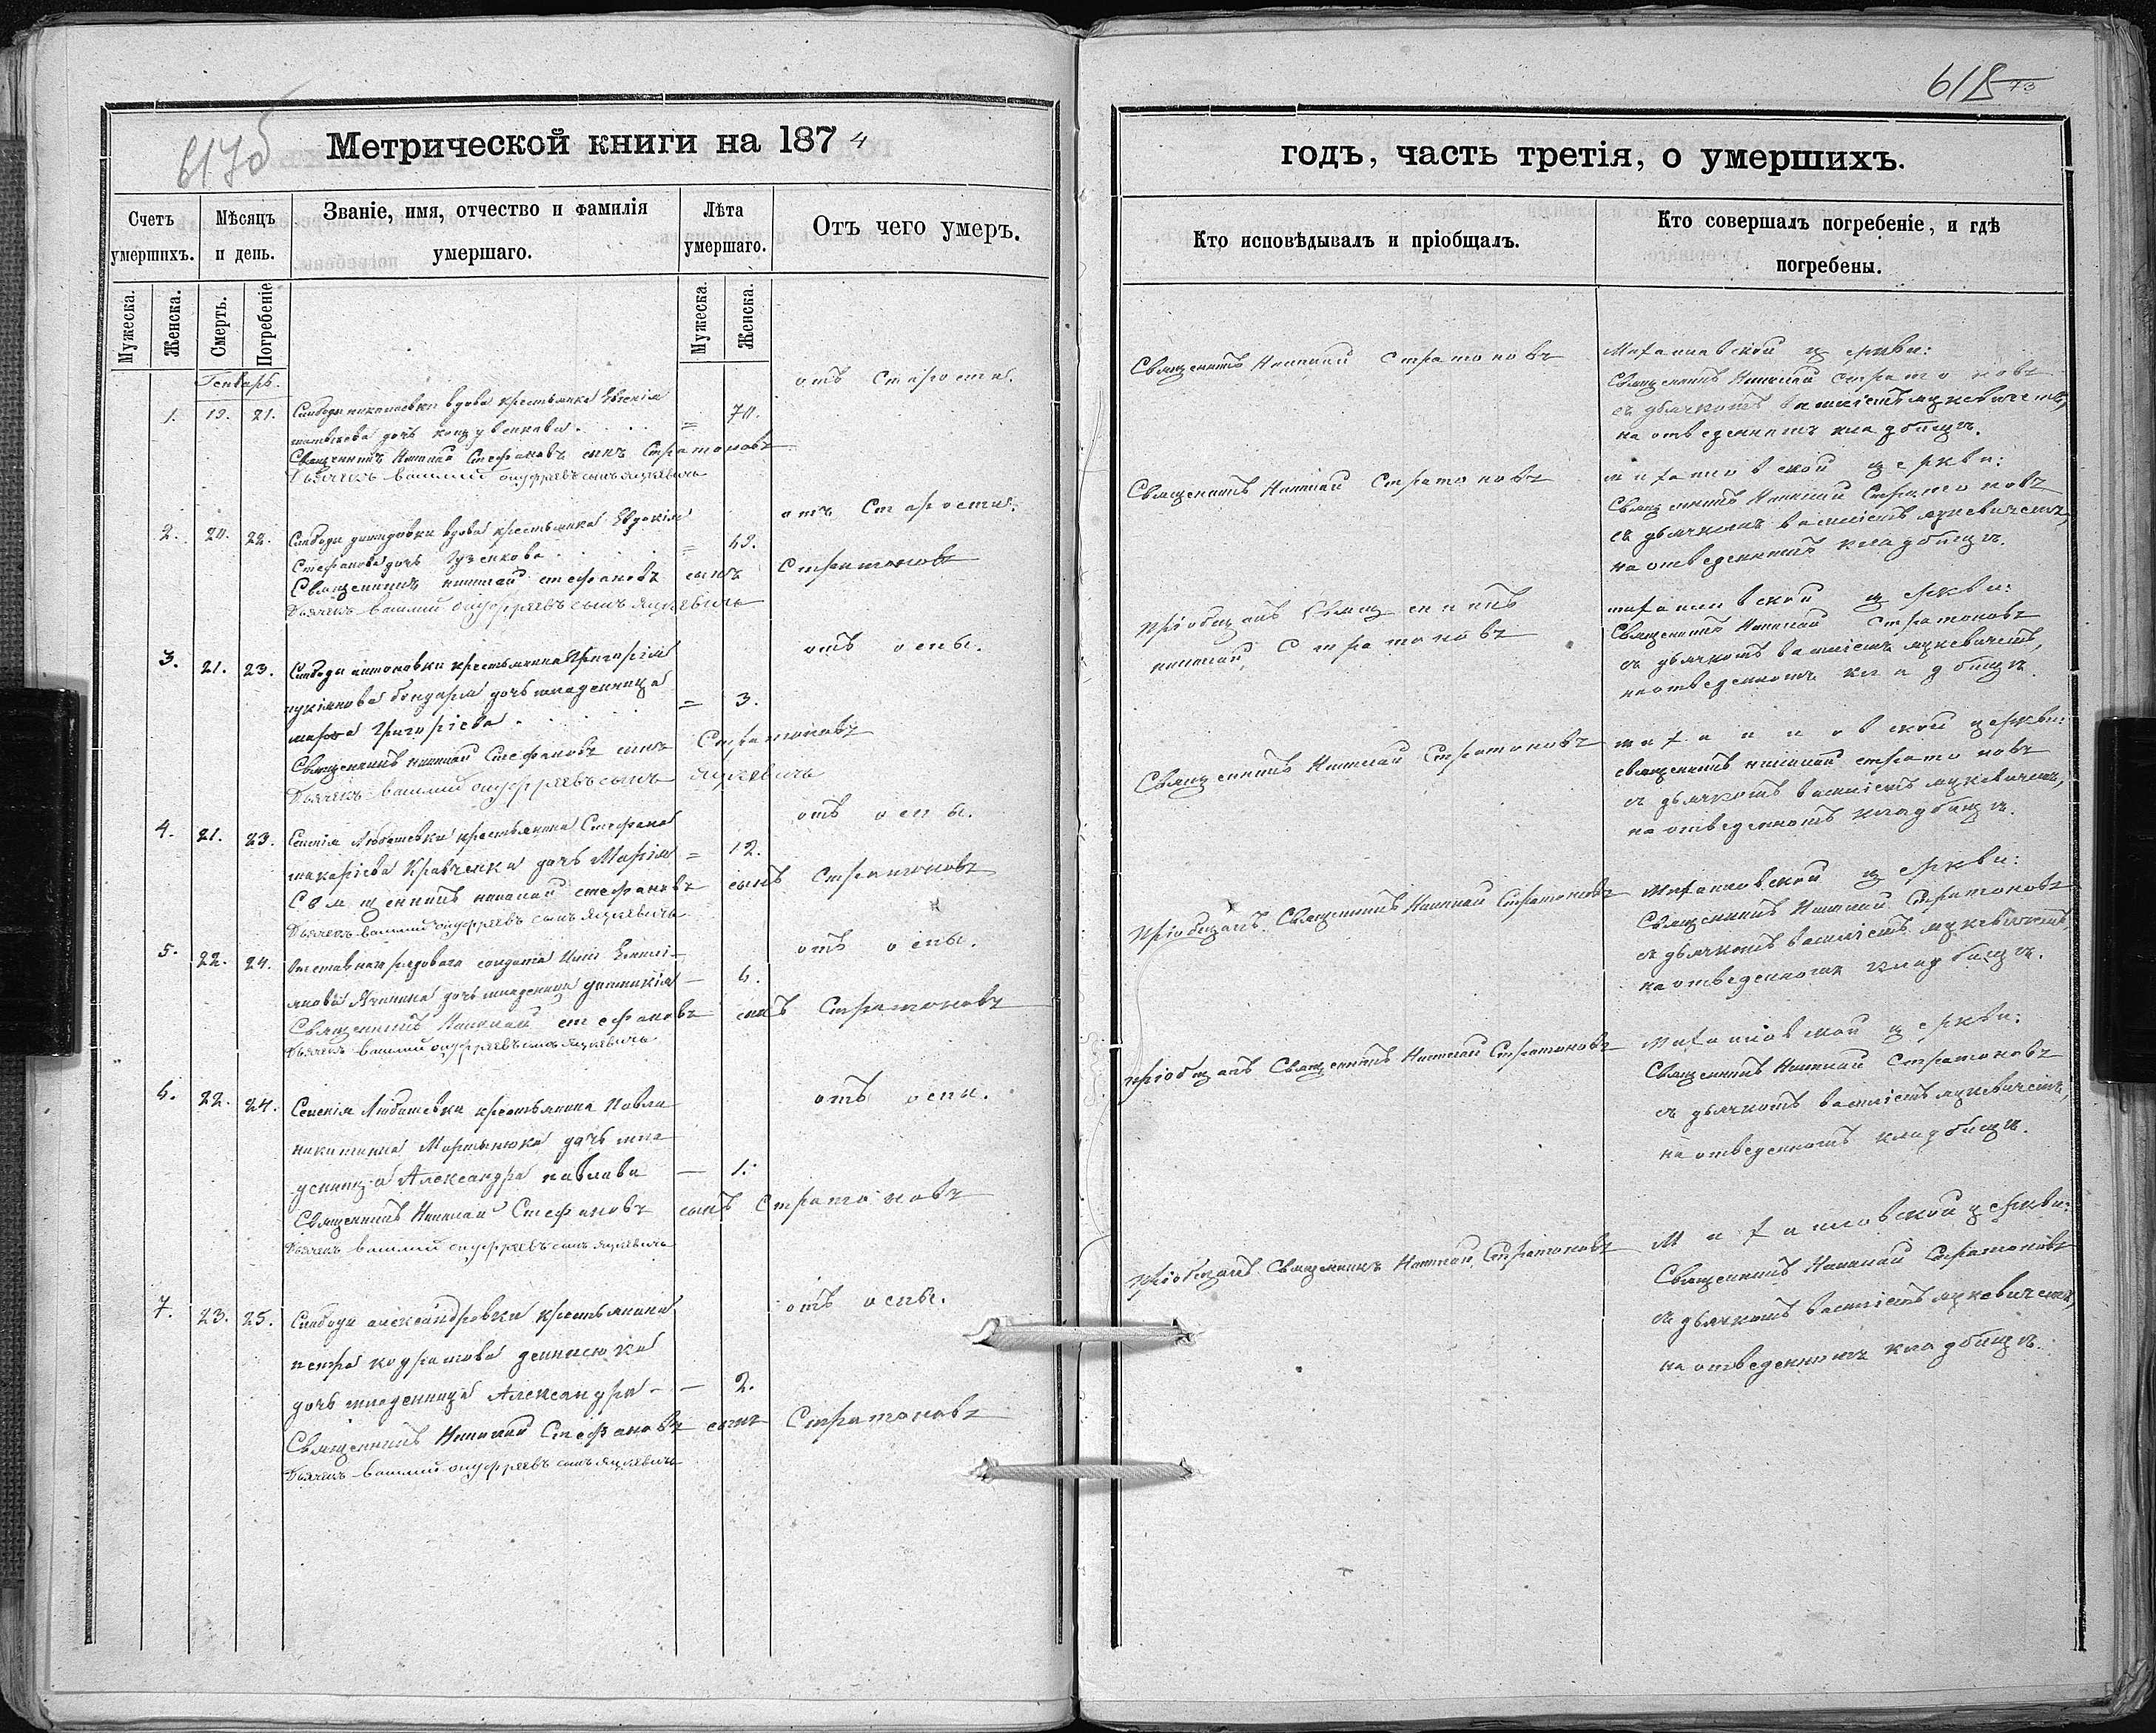 617об
Метрической книги на 1874
Счетъ умершихъ.
Мѣсяцъ и день.
Званіе, имя, отчество и фамилія умершаго.
Лѣта умершаго.
Отъ чего умеръ.
Мужеска.
Женска.
Смерть.
Погребеніе
Мужеска.
Женска.
Генварь.
отъ старости.
1. 19. 21. Слободы николаевки вдова крестьянка Евгенія
дочь = 70.
Священникъ Николай Стефановъ сынъ Стратоновъ
Дьячекъ василий онуфріевъ сынъ яцкевичь
отъ старости.
2. 20. 22. Слободы демидовки вдова крестьянка Евдокія
Стефанова дочь Гузенкова =
Священникъ николай стефановъ сынъ Стратоновъ
Дьячекъ василий онуфріевъ сынъ яцкевичь
отъ оспы.
3. 21. 23. Слободы антоновки крестьянина Григорія
лукіянова бондаря дочь младенница = 3.
Григоріева
Священникъ николай Стефановъ сынъ Стратоновъ
Дьячекъ василий онуфріевъ сынъ яцкевичь
отъ оспы.
4. 21. 23. Селенія Любашевки крестьянина Стефана
макаріева Кравченка дочь Марія = 12.
Священникъ николай стефановъ сынъ Стратоновъ
Дьячекъ василий онуфріевъ сынъ яцкевичь
отъ оспы.
5. 22. 24. рядоваго солдата
дочь младенница — 6.
Священникъ Николай стефановъ сынъ Стратоновъ
Дьячекъ василий онуфріевъ сынъ яцкевичь
отъ оспы.
6. 22. 24. Селенія Любашевки крестьянина Павла
никитина Мартынюка дочь мла-
денница Александра павлова — 1.
Священникъ Николай Стефановъ сынъ Стратоновъ
Дьячекъ василий онуфріевъ сынъ яцкевичь
отъ оспы.
7. 23. 25. Слободы александровки крестьянина
петра кодратова денисюка
дочь младенница Александра — 2.
Священникъ Николай Стефановъ сынъ Стратоновъ
Дьячекъ василий онуфріевъ сынъ яцкевичь
618 73
годъ, часть третія, о умершихъ.
Кто исповѣдывалъ и пріобщалъ.
Кто совершалъ погребеніе, и гдѣ
погребены.
Священникъ Николай Стратоновъ
церкви:
Священникъ Николай Стратоновъ
съ дьячкомъ василіемъ яцкевичемъ,
на отведенномъ кладбищѣ.
Священникъ Николай Стратоновъ
церкви:
Священникъ Николай Стратоновъ
съ дьячкомъ василіемъ яцкевичемъ,
на отведенномъ кладбищѣ.
пріобщалъ Священникъ
николай Стратоновъ
церкви:
Священникъ Николай Стратоновъ
съ дьячкомъ василіемъ яцкевичемъ,
на отведенномъ кладбищѣ.
Священникъ Николай Стратоновъ
церкви:
священникъ николай стратоновъ
съ дьячкомъ василіемъ яцкевичемъ,
на отведенномъ кладбищѣ.
пріобщалъ Священникъ Николай Стратоновъ
церкви:
Священникъ Николай Стратоновъ
съ дьячкомъ василіемъ яцкевичемъ,
на отведенномъ кладбищѣ.
пріобщалъ Священникъ Николай Стратоновъ
церкви:
Священникъ Николай Стратоновъ
съ дьячкомъ василіемъ яцкевичемъ,
на отведенномъ кладбищѣ.
пріобщалъ Священникъ Николай Стратоновъ
церкви:
Священникъ Николай Стратоновъ
съ дьячкомъ василіемъ яцкевичемъ,
на отведенномъ кладбищѣ.